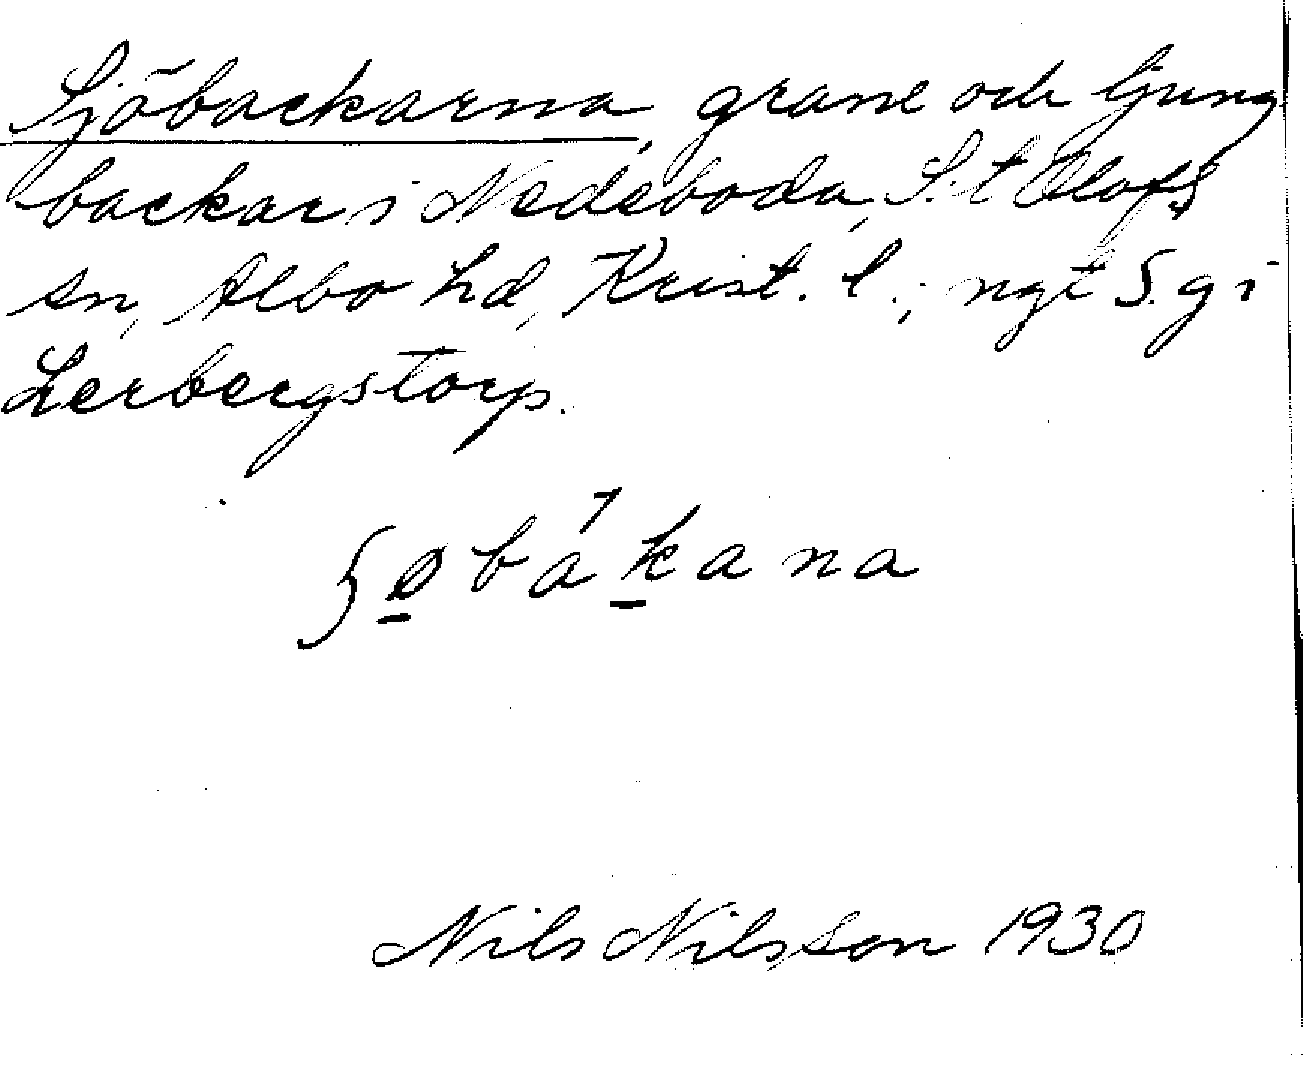 Sjöbackarna, grane och ljung
backar i Nedeboda, S:t Olofs
sn, Albo hd, Krist. l.; ngt S. g i
Lerbergstorp.
ʃøbákana
Nils Nilsson 1930